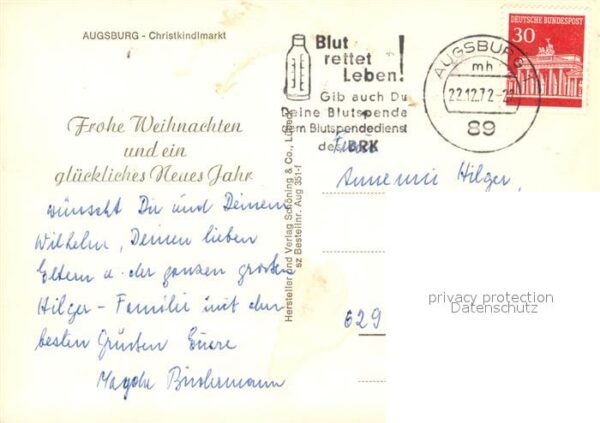 AUGSBURG - Christkindlmarkt
Frohe Weihnachten
und ein
glückliches Neues Jahr
wünscht Dir und Deinem
Wilhelm, Deinen lieben
Eltern u. der ganzen großen
Hilger - Familie mit den
besten Grüßen Eure
Magda Bindermann
Hersteller und Verlag Schöning & Co., Lübeck
sz Bestellnr. Aug 351-f
Blut
rettet
Leben!
Gib auch Du
Deine Blutspende
dem Blutspendedienst
des BRK
AUGSBURG
mh
22.12.72
89
DEUTSCHE BUNDESPOST
30
Annemie Hilger,
629
privacy protection
Datenschutz